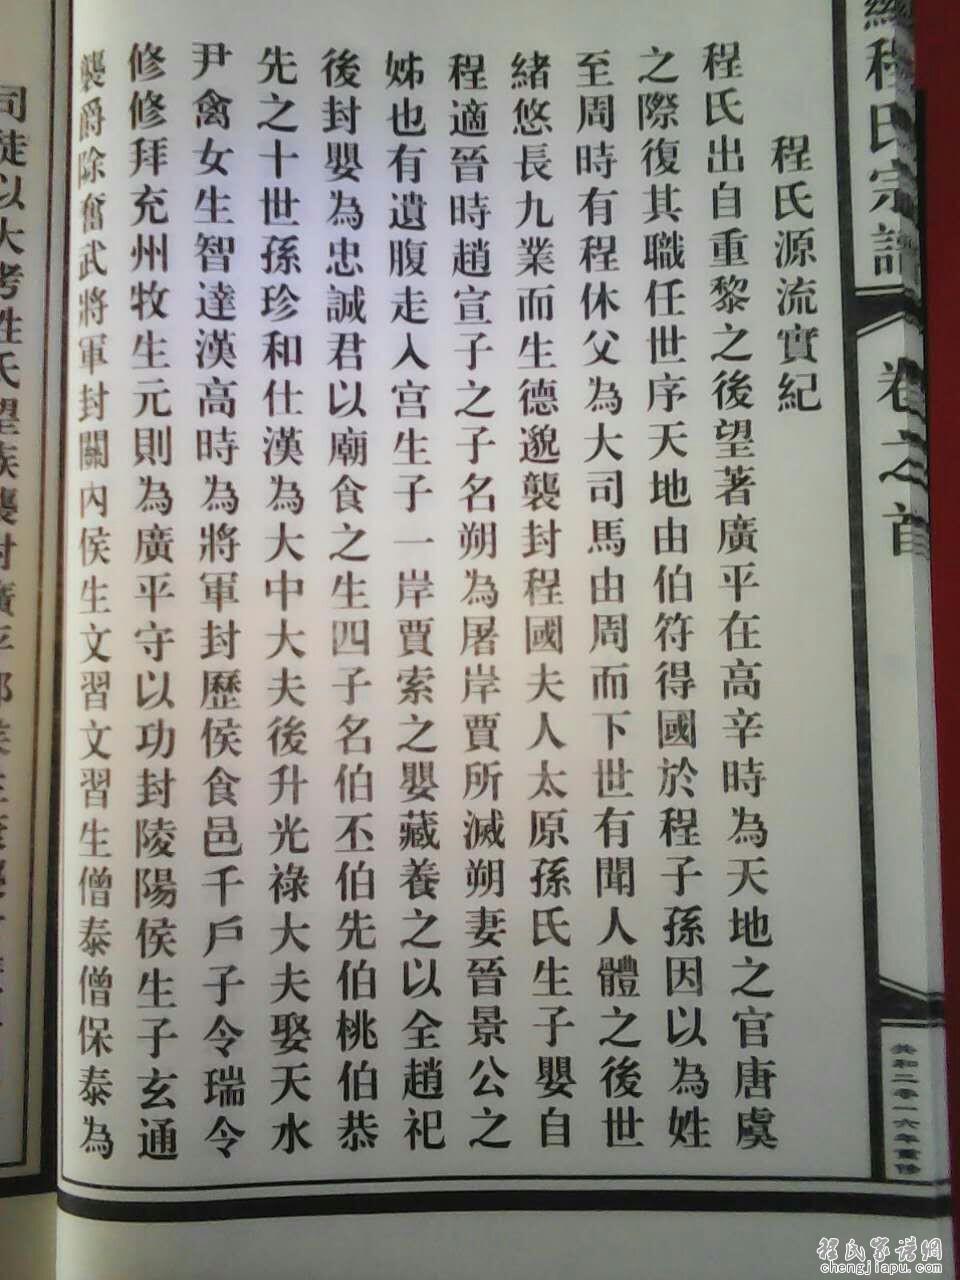 程氏宗譜
卷之首
共和二零一六年重修
程氏源流實紀
程氏出自重黎之後望著廣平在高辛時為天地之官唐虞
之際復其職任世序天地由伯符得國於程子孫因以為姓
至周時有程休父為大司馬由周而下世有聞人體之後世
緒悠長九業而生德邈襲封程國夫人太原孫氏生子嬰自
程適晉時趙宣子之子名朔為屠岸賈所滅朔妻晉景公之
姊也有遺腹走入宮生子一岸賈索之嬰藏養之以全趙祀
後封嬰為忠誠君以廟食之生四子名伯丕伯先伯桃伯恭
先之十世孫珍和仕漢為大中大夫後升光祿大夫娶天水
尹禽女生智達漢高時為將軍封歷侯食邑千戶子令瑞令
修修拜充州牧生元則為廣平守以功封陵陽侯生子玄通
襲爵除奮武將軍封關內侯生文習文習生僧泰僧保泰為
司徒以大考姓氏望族襲封廣平郡
程氏家譜網
chengjiapu.com